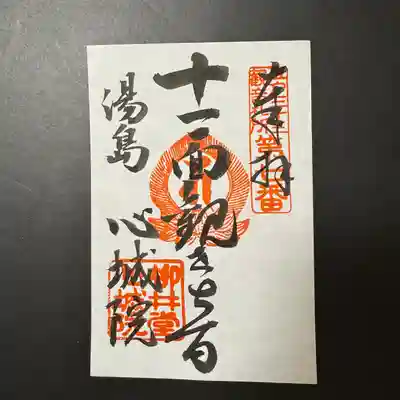 奉拝
十一面観世音
湯島 心城院
柳井堂
心城院